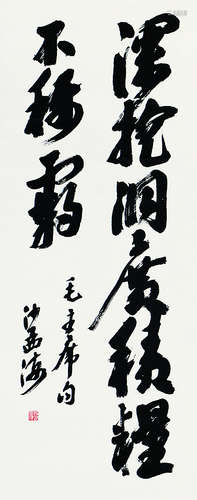 深挖洞广积粮
不称霸
毛主席句
沙孟海